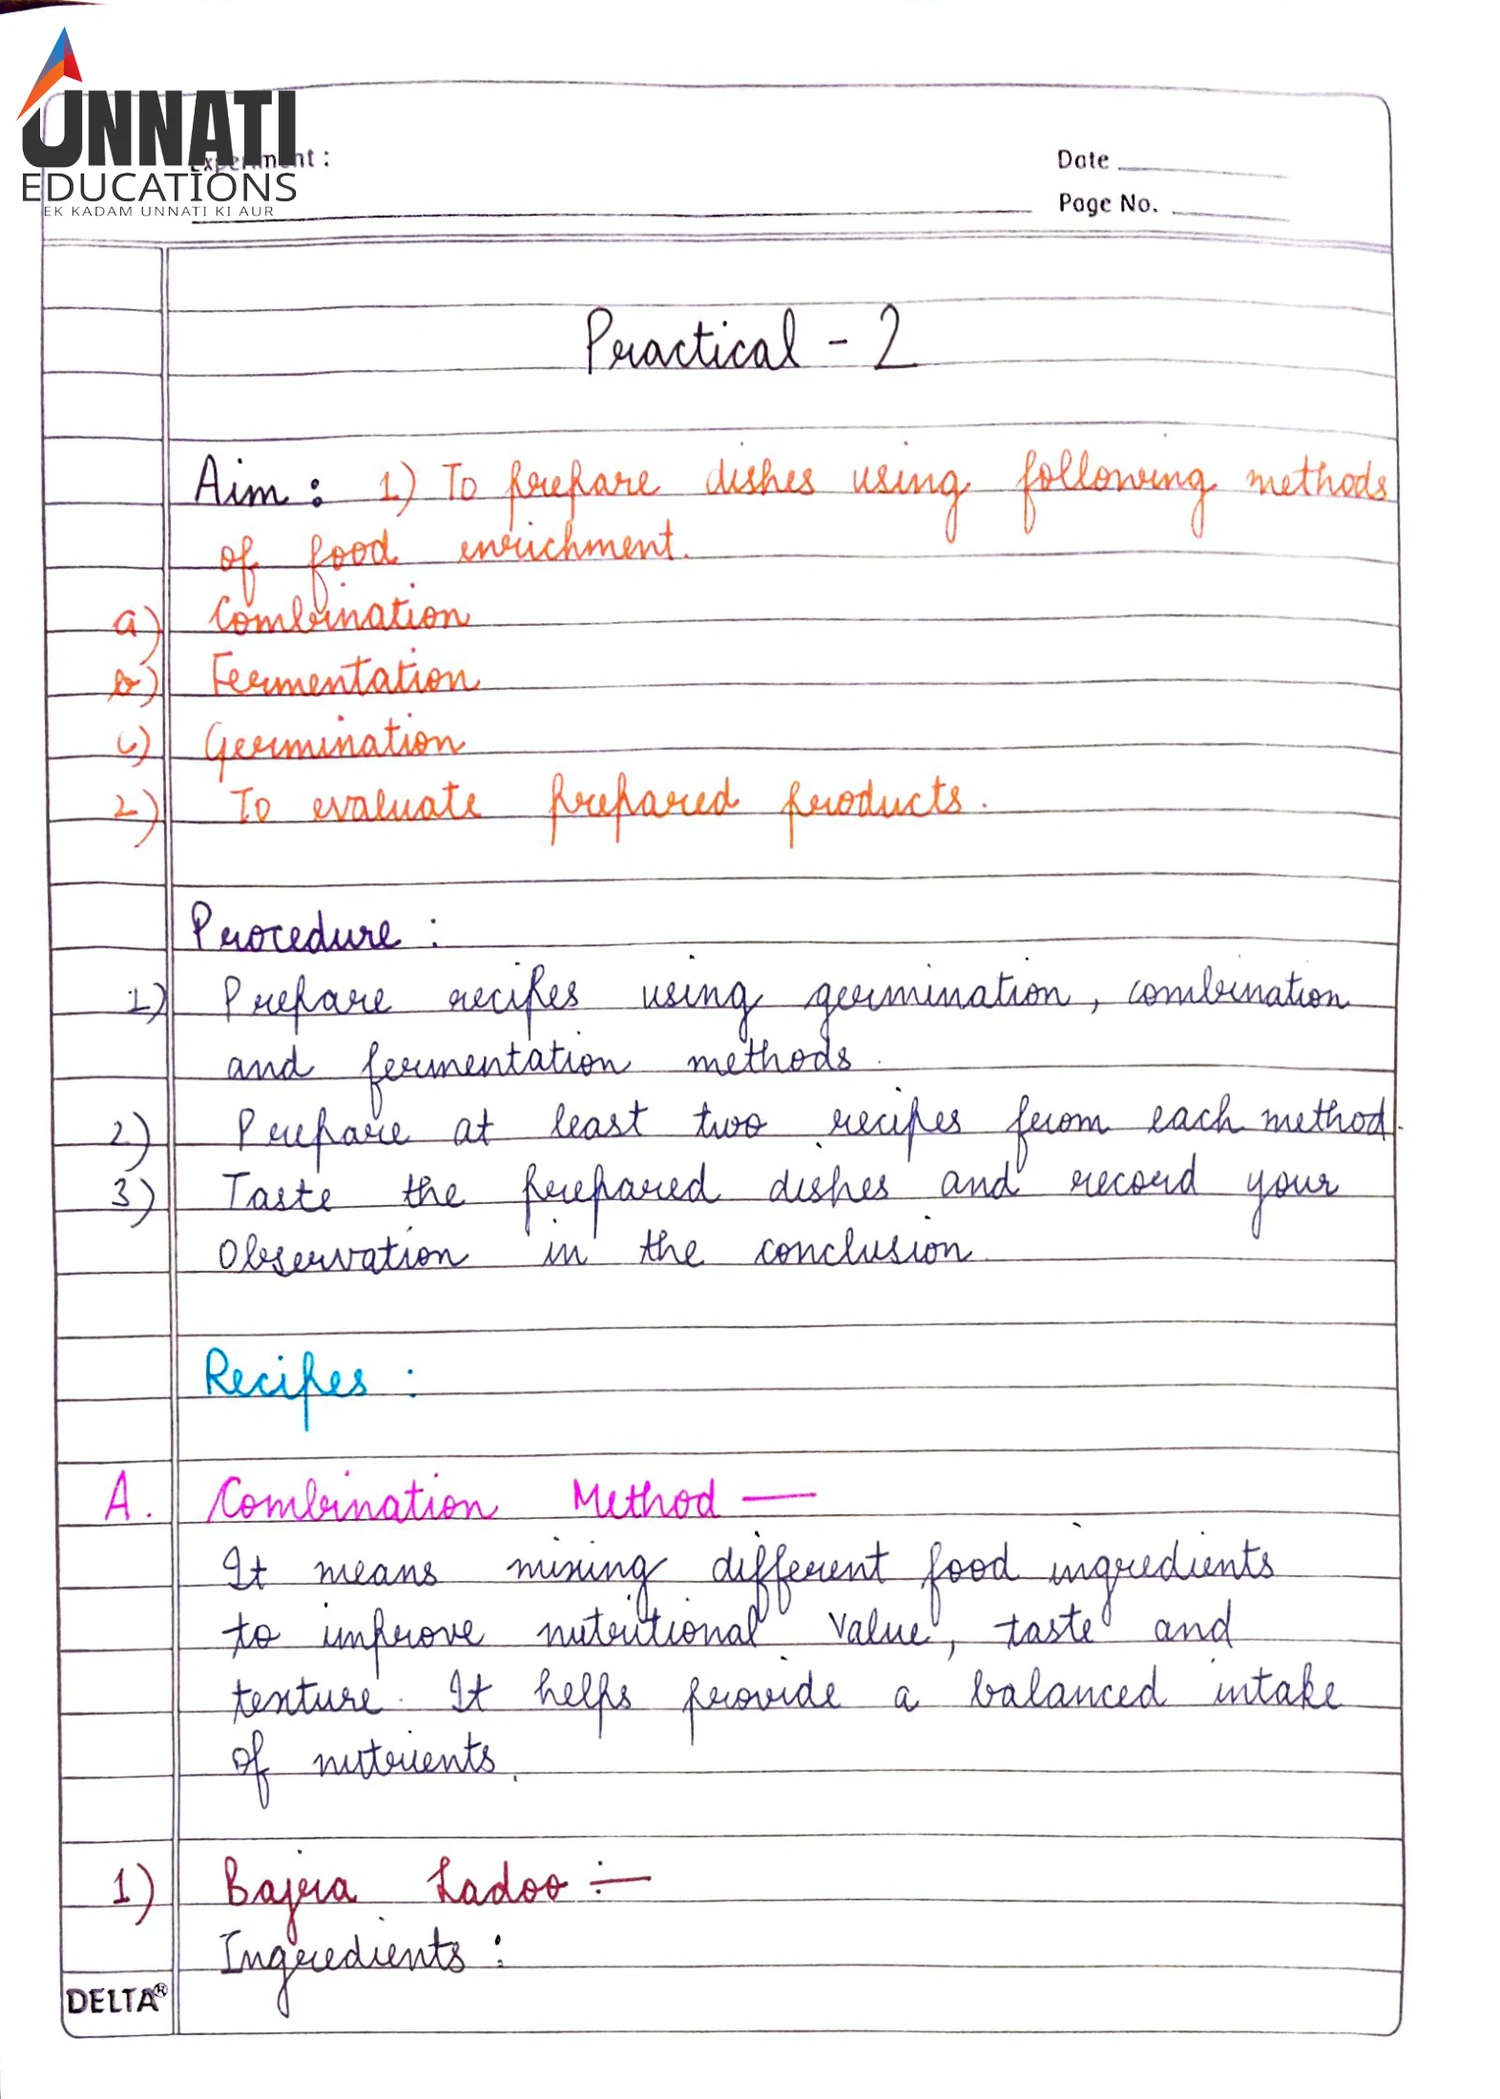 UNNATI
EDUCATIONS
EK KADAM UNNATI KI AUR
Experiment :
Date
Page No.
Practical - 2
Aim : 1) To prepare dishes using following methods
of food enrichment.
a) Combination
b) Fermentation
c) Germination
2) To evaluate prepared products.
Procedure :
1) Prepare recipes using germination, combination
and fermentation methods.
2) Prepare at least two recipes from each method.
3) Taste the prepared dishes and record your
observation in the conclusion.
Recipes :
A. Combination Method —
It means mixing different food ingredients
to improve nutritional value, taste and
texture. It helps provide a balanced intake
of nutrients.
1) Bajra Ladoo :—
Ingredients :
DELTA®